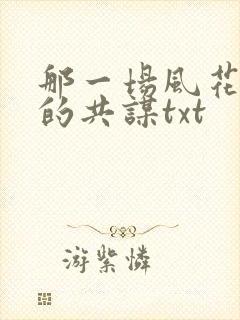 那一場風花
的共謀txt
游紫憐